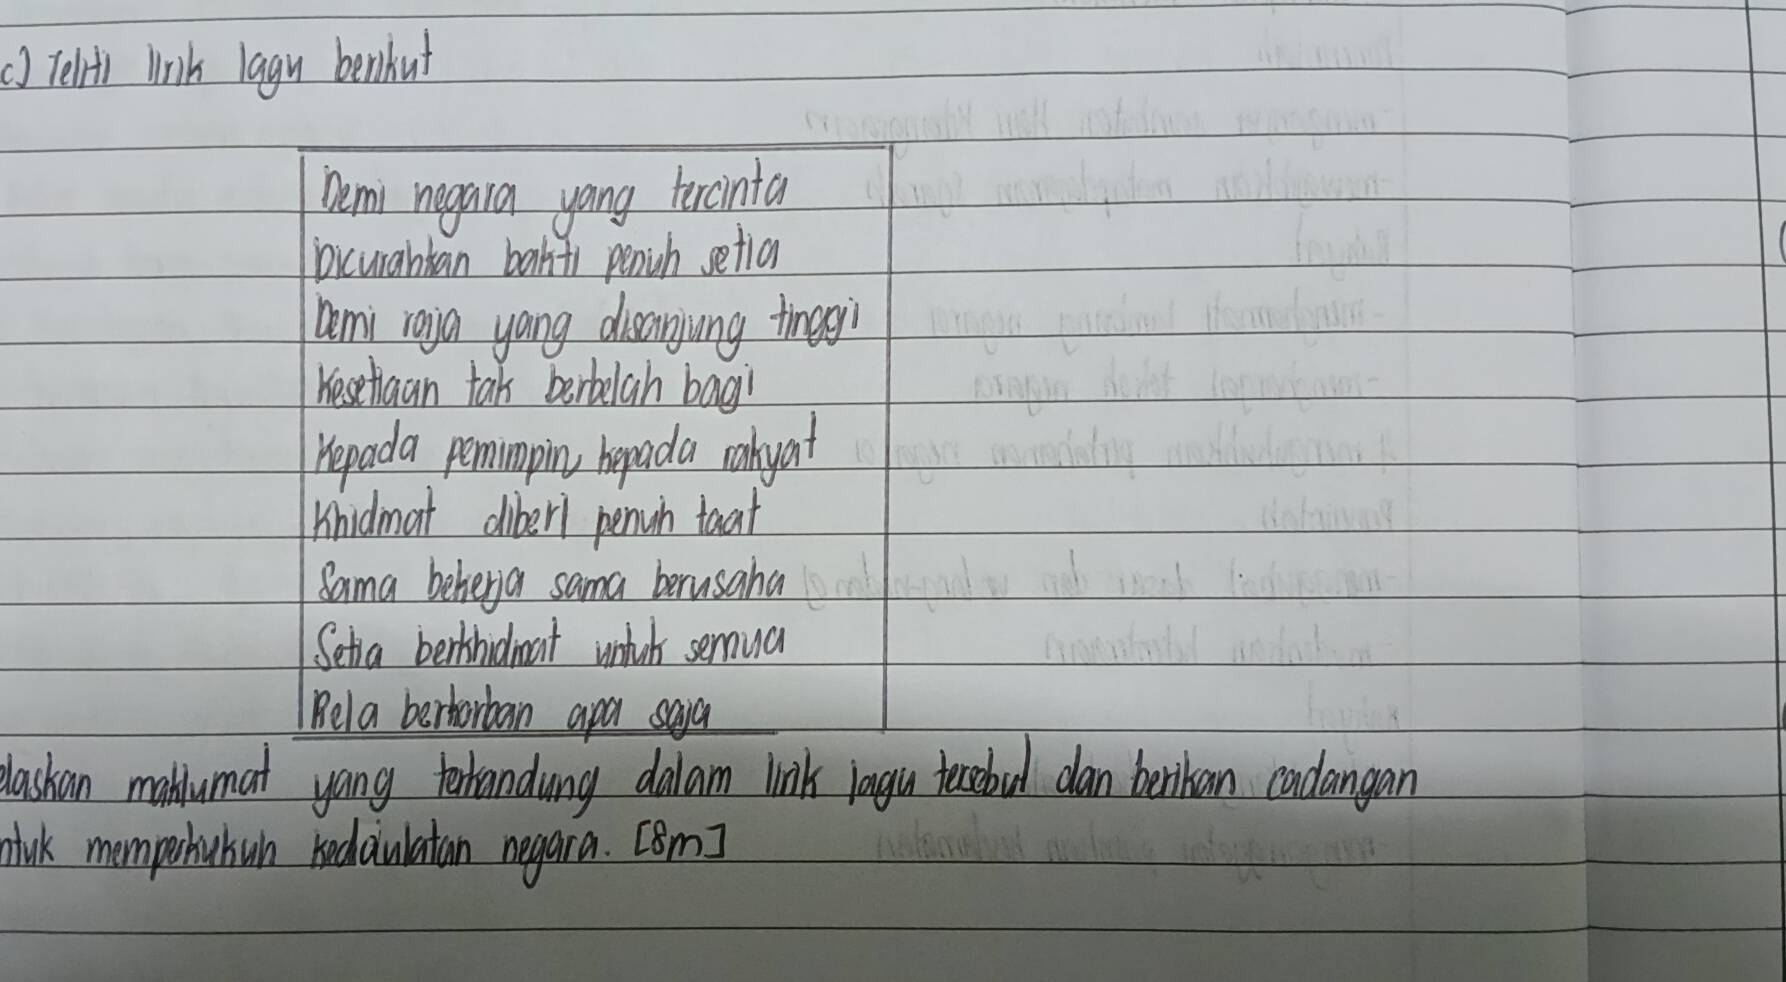 c) Teliti lirik lagu berikut
Demi negara yang tercinta
Dicurahkan bakti penuh setia
Demi raja yang disanjung tinggi
Kesetiaan tak berbelah bagi
Kepada pemimpin kepada rakyat
Khidmat diberi penuh taat
Sama bekerja sama berusaha
Setia berkhidmat untuk semua
Rela berkorban apa saja
elaskan maklumat yang terkandung dalam lirik lagu tersebut dan berikan cadangan
ntuk memperkukuh kedaulatan negara. [8m]